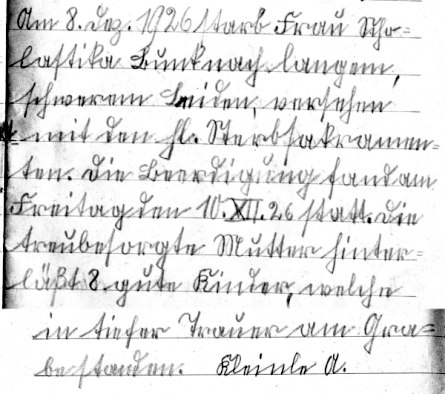 Am 8. Dez. 1926 starb Frau Scho=
lastika Bunk nach langem,
schwerem Leiden, versehen
mit den hl. Sterbsakramen=
ten. Die Beerdigung fand am
Freitag den 10. XII. 26 statt. Die
treubesorgte Mutter hinter=
läßt 8 gute Kinder, welche
in tiefer Trauer am Gra=
be standen. Kleinle A.